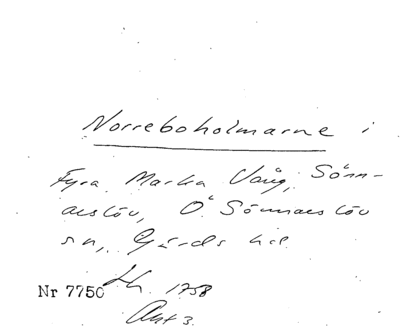 Norreboholmarne i
Fyra Marka Vång, Sönn-
aeslöv, Ö. Sönnaeslöv
sn, Gärds hd.
Nr 7750 Lh. 1758
Akt 3.